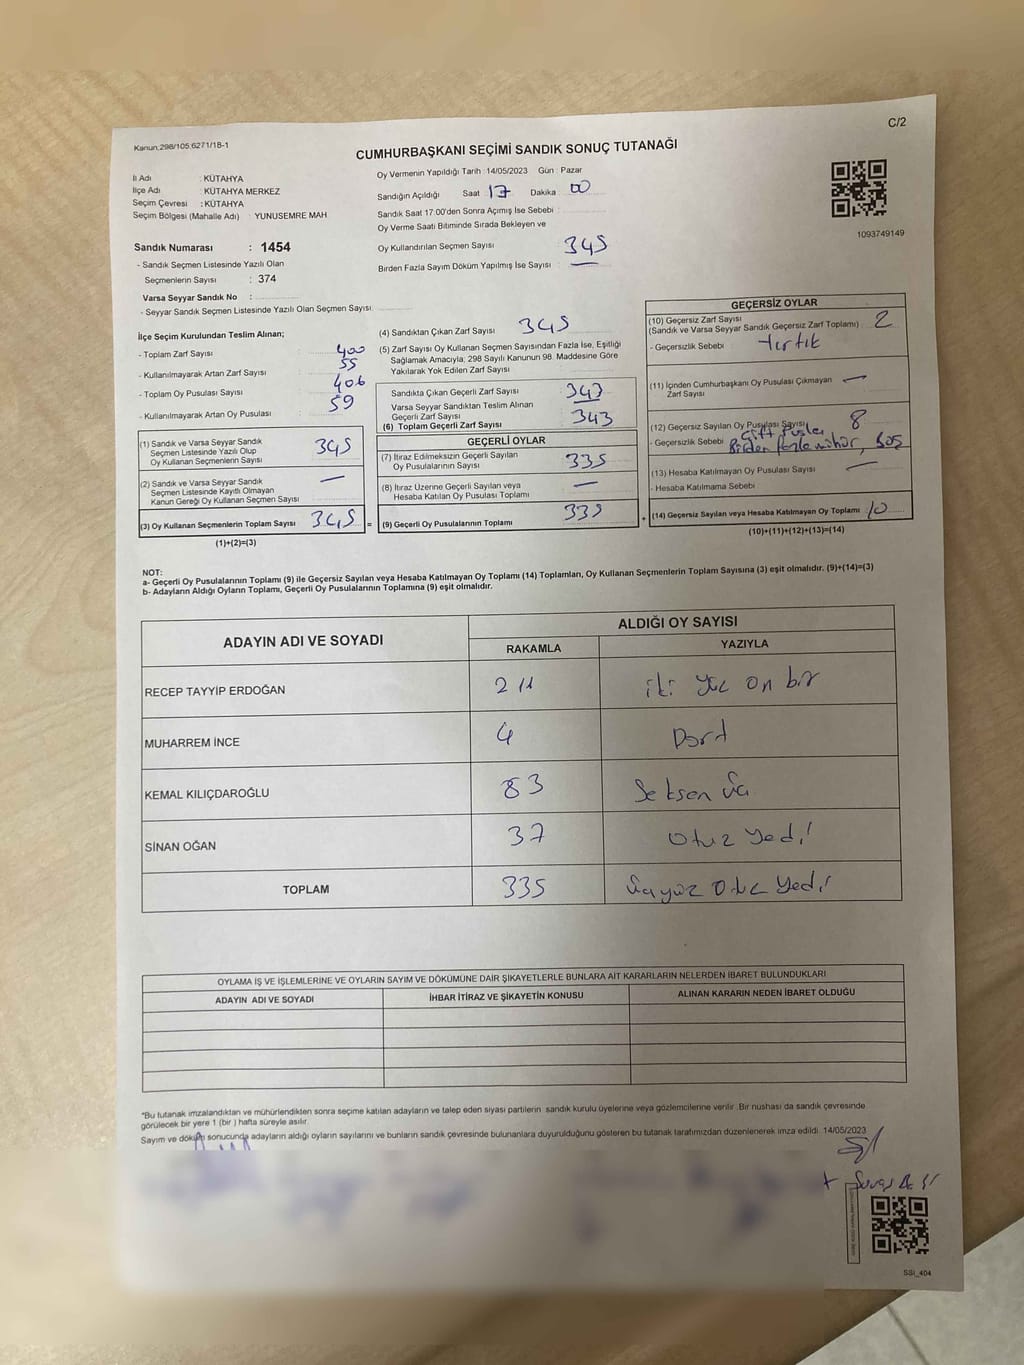 C/2
Kanun:298/105:6271/18-1
CUMHURBAŞKANI SEÇİMİ SANDIK SONUÇ TUTANAĞI
İl Adı : KÜTAHYA
İlçe Adı : KÜTAHYA MERKEZ
Seçim Çevresi : KÜTAHYA
Seçim Bölgesi (Mahalle Adı) : YUNUSEMRE MAH
Sandık Numarası : 1454
- Sandık Seçmen Listesinde Yazılı Olan
Seçmenlerin Sayısı : 374
Varsa Seyyar Sandık No :
- Seyyar Sandık Seçmen Listesinde Yazılı Olan Seçmen Sayısı:
Oy Vermenin Yapıldığı Tarih : 14/05/2023 Gün : Pazar
Sandığın Açıldığı Saat 17 Dakika 00
Sandık Saat 17:00'den Sonra Açımış İse Sebebi :
Oy Verme Saati Bitiminde Sırada Bekleyen ve
Oy Kullandırılan Seçmen Sayısı 345
Birden Fazla Sayım Döküm Yapılmış İse Sayısı : —
1093749149
İlçe Seçim Kurulundan Teslim Alınan;
- Toplam Zarf Sayısı : 400
- Kullanılmayarak Artan Zarf Sayısı : 55
- Toplam Oy Pusulası Sayısı : 406
- Kullanılmayarak Artan Oy Pusulası : 59
(1) Sandık ve Varsa Seyyar Sandık
Seçmen Listesinde Yazılı Olup
Oy Kullanan Seçmenlerin Sayısı 345
(2) Sandık ve Varsa Seyyar Sandık
Seçmen Listesinde Kayıtlı Olmayan
Kanun Gereği Oy Kullanan Seçmen Sayısı —
(3) Oy Kullanan Seçmenlerin Toplam Sayısı 345 =
(1)+(2)=(3)
(4) Sandıktan Çıkan Zarf Sayısı 345
(5) Zarf Sayısı Oy Kullanan Seçmen Sayısından Fazla İse, Eşitliği
Sağlamak Amacıyla; 298 Sayılı Kanunun 98. Maddesine Göre
Yakılarak Yok Edilen Zarf Sayısı :
Sandıkta Çıkan Geçerli Zarf Sayısı 343
Varsa Seyyar Sandıktan Teslim Alınan
Geçerli Zarf Sayısı —
(6) Toplam Geçerli Zarf Sayısı 343
GEÇERLİ OYLAR
(7) İtiraz Edilmeksizin Geçerli Sayılan
Oy Pusulalarının Sayısı 335
(8) İtiraz Üzerine Geçerli Sayılan veya
Hesaba Katılan Oy Pusulası Toplamı —
(9) Geçerli Oy Pusulalarının Toplamı 335 +
GEÇERSİZ OYLAR
(10) Geçersiz Zarf Sayısı
(Sandık ve Varsa Seyyar Sandık Geçersiz Zarf Toplamı) 2
- Geçersizlik Sebebi : Yırtık
(11) İçinden Cumhurbaşkanı Oy Pusulası Çıkmayan
Zarf Sayısı —
(12) Geçersiz Sayılan Oy Pusulası Sayısı 8
- Geçersizlik Sebebi Çift Pusla, Birden fazla mühür, Boş
(13) Hesaba Katılmayan Oy Pusulası Sayısı —
- Hesaba Katılmama Sebebi
(14) Geçersiz Sayılan veya Hesaba Katılmayan Oy Toplamı 10
(10)+(11)+(12)+(13)=(14)
NOT:
a- Geçerli Oy Pusulalarının Toplamı (9) ile Geçersiz Sayılan veya Hesaba Katılmayan Oy Toplamı (14) Toplamları, Oy Kullanan Seçmenlerin Toplam Sayısına (3) eşit olmalıdır. (9)+(14)=(3)
b- Adayların Aldığı Oyların Toplamı, Geçerli Oy Pusulalarının Toplamına (9) eşit olmalıdır.
ADAYIN ADI VE SOYADI ALDIĞI OY SAYISI
RAKAMLA YAZIYLA
RECEP TAYYİP ERDOĞAN 211 iki yüz on bir
MUHARREM İNCE 4 Dört
KEMAL KILIÇDAROĞLU 83 Seksen üç
SİNAN OĞAN 37 Otuz yedi
TOPLAM 335 üçyüz otuz yedi
OYLAMA İŞ VE İŞLEMLERİNE VE OYLARIN SAYIM VE DÖKÜMÜNE DAİR ŞİKAYETLERLE BUNLARA AİT KARARLARIN NELERDEN İBARET BULUNDUKLARI
ADAYIN ADI VE SOYADI İHBAR İTİRAZ VE ŞİKAYETİN KONUSU ALINAN KARARIN NEDEN İBARET OLDUĞU
*Bu tutanak imzalandıktan ve mühürlendikten sonra seçime katılan adayların ve talep eden siyasi partilerin sandık kurulu üyelerine veya gözlemcilerine verilir. Bir nushası da sandık çevresinde
görülecek bir yere 1 (bir) hafta süreyle asılır.
Sayım ve döküm sonucunda adayların aldığı oyların sayılarını ve bunların sandık çevresinde bulunanlara duyurulduğunu gösteren bu tutanak taratımızdan düzenlenerek imza edildi. 14/05/2023
SSİ_404